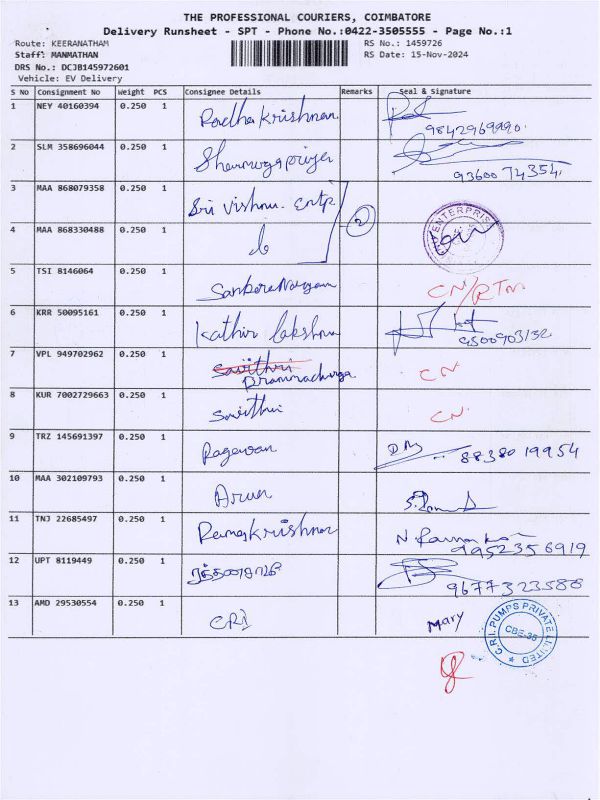 THE PROFESSIONAL COURIERS, COIMBATORE
Delivery Runsheet - SPT - Phone No.:0422-3505555 - Page No.:1
Route: KEERANATHAM RS No.: 1459726
Staff: MANMATHAN RS Date: 15-Nov-2024
DRS No.: DCJB145972601
Vehicle: EV Delivery
S No Consignment No Weight PCS Consignee Details Remarks Seal & Signature
1 NEY 40160394 0.250 1 Radha Krishnan 9842969990
2 SLM 358696044 0.250 1 Shanmugapriya 9360074354
3 MAA 868079358 0.250 1 Sri Vishnu. Entp
2
4 MAA 868330488 0.250 1 ENTERPRIS
5 TSI 8146064 0.250 1 CN/RTN
6 KRR 50095161 0.250 1 Kathir lakshma 9500903132
7 VPL 949702962 0.250 1 Savithri CN
8 KUR 7002729663 0.250 1 Savithri CN
9 TRZ 145691397 0.250 1 8838019954
10 MAA 302109793 0.250 1 Arun
11 TNJ 22685497 0.250 1 Ramakrishnan N Rama 9952356919
12 UPT 8119449 0.250 1 9677323588
13 AMD 29530554 0.250 1 CRI Mary
C.R.I. PUMPS PRIVATE LIMITED
CBE-35